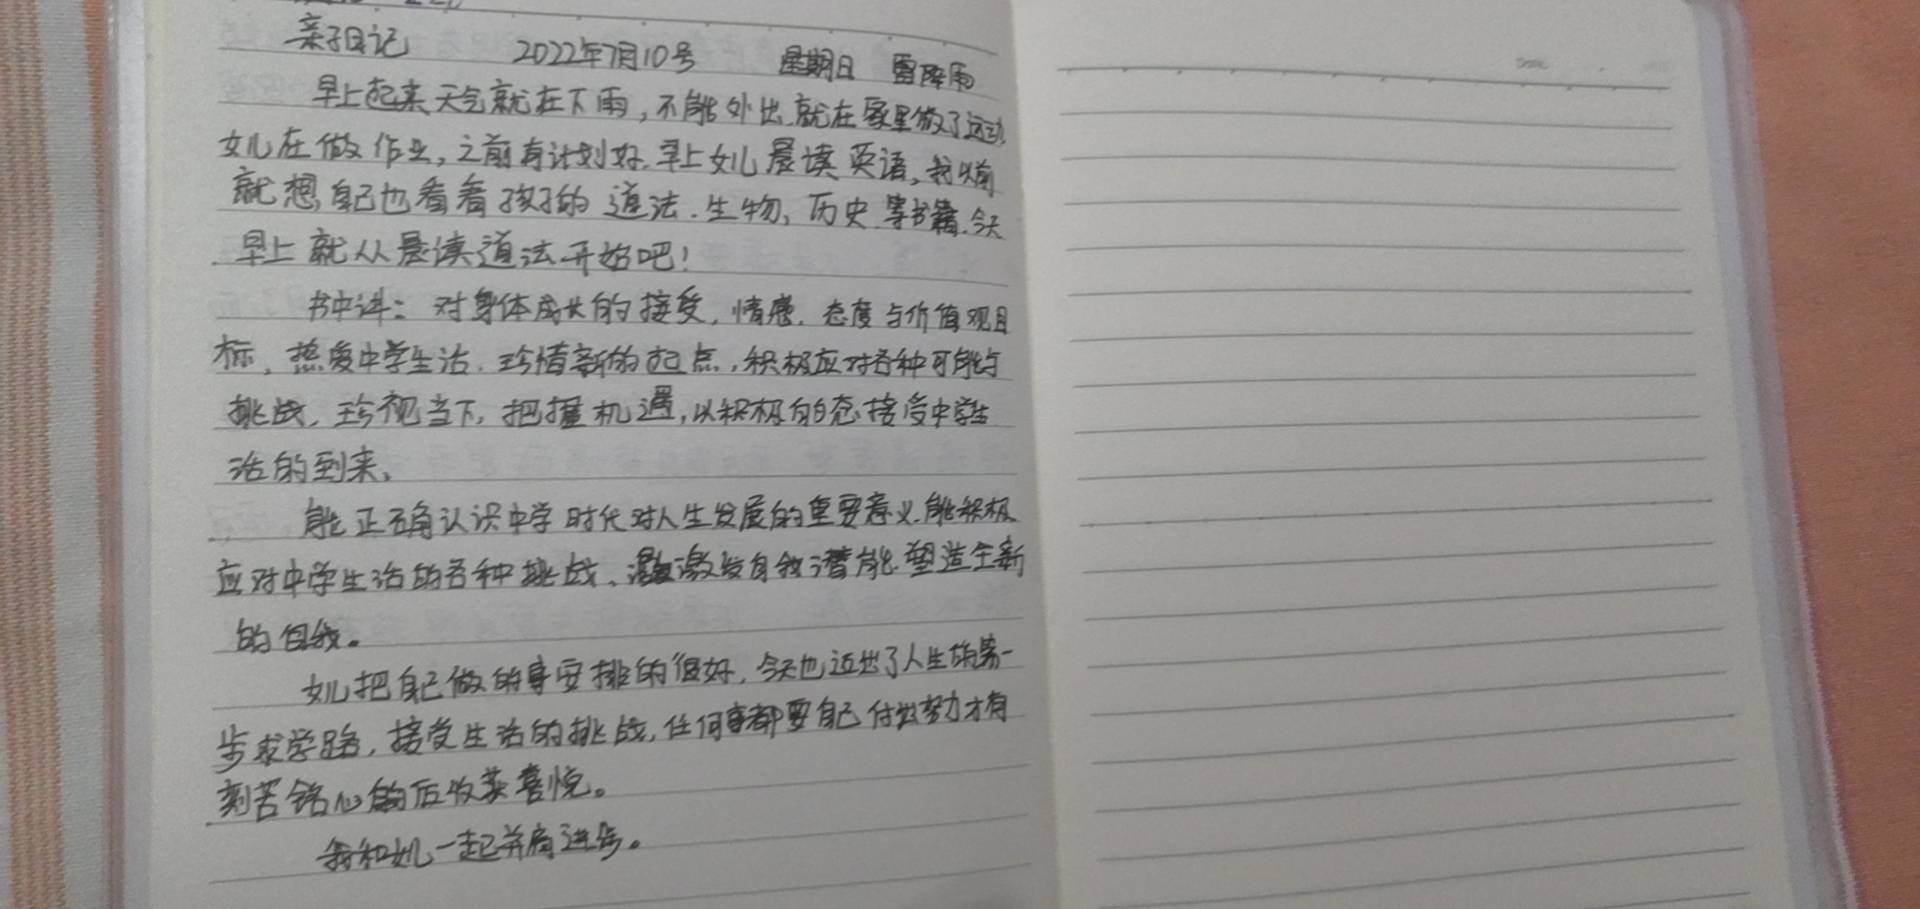 亲子日记 2022年7月10号 星期日 雷阵雨
早上起来天气就在下雨，不能外出、就在家里做了运动，
女儿在做作业，之前有计划好、早上女儿晨读英语，我以前
就想自己也看看孩子的道法、生物、历史、等书籍、今天
早上就从晨读道法开始吧！
书中讲：对身体成长的接受，情感、态度与价值观目
标，热爱中学生活、珍惜新的起点，积极应对各种可能与
挑战，珍视当下，把握机遇，以积极的态接受中学生
活的到来、
能正确认识中学时代对人生发展的重要意义、能积极
应对中学生活的各种挑战、激发自我潜能、塑造全新
的自我。
女儿把自己做的事安排的很好，今天也迈出了人生的第一
步求学路，接受生活的挑战，任何事都要自己付出努力才有
刻苦铭心的后收获喜悦。
我和女儿一起并肩进步。